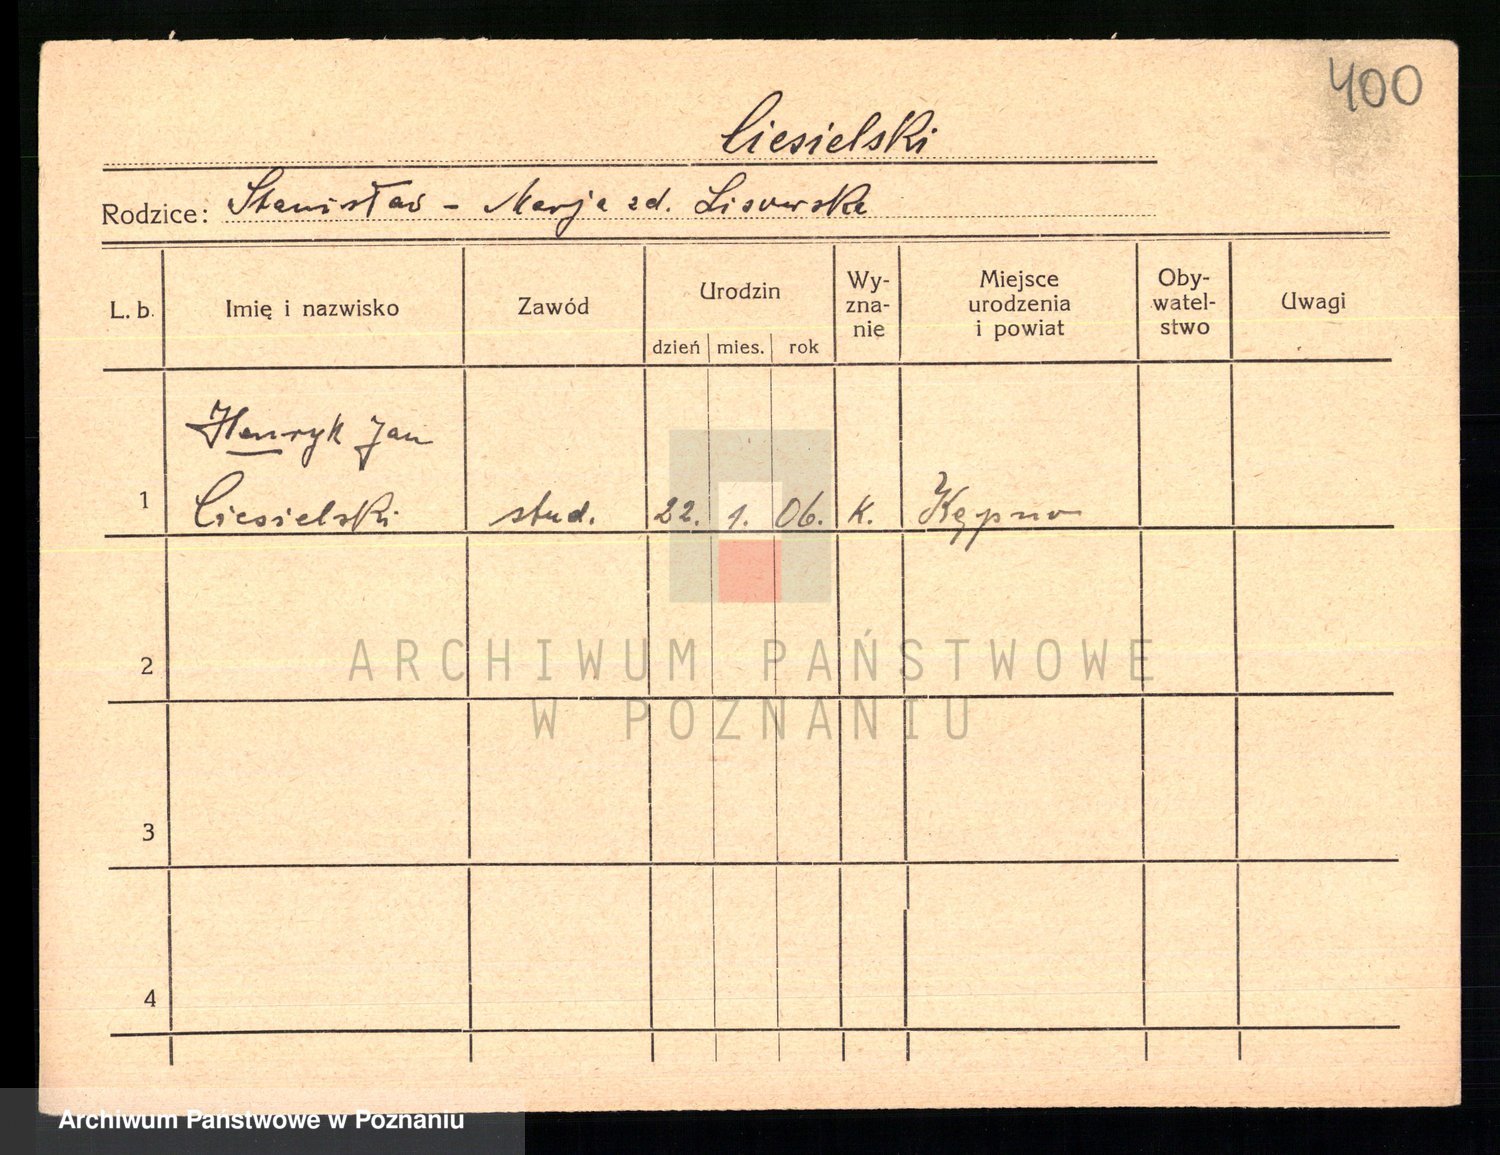 400
Ciesielski
Rodzice: Stanisław - Marja zd.
L. b. Imię i nazwisko Zawód Urodzin Wy-zna-nie Miejsce urodzenia i powiat Oby-watel-stwo Uwagi
dzień mies. rok
Henryk Jan
1 Ciesielski stud. 22. 1. 06. k. Kępno
2
ARCHIWUM PAŃSTWOWE
W POZNANIU
3
4
Archiwum Państwowe w Poznaniu